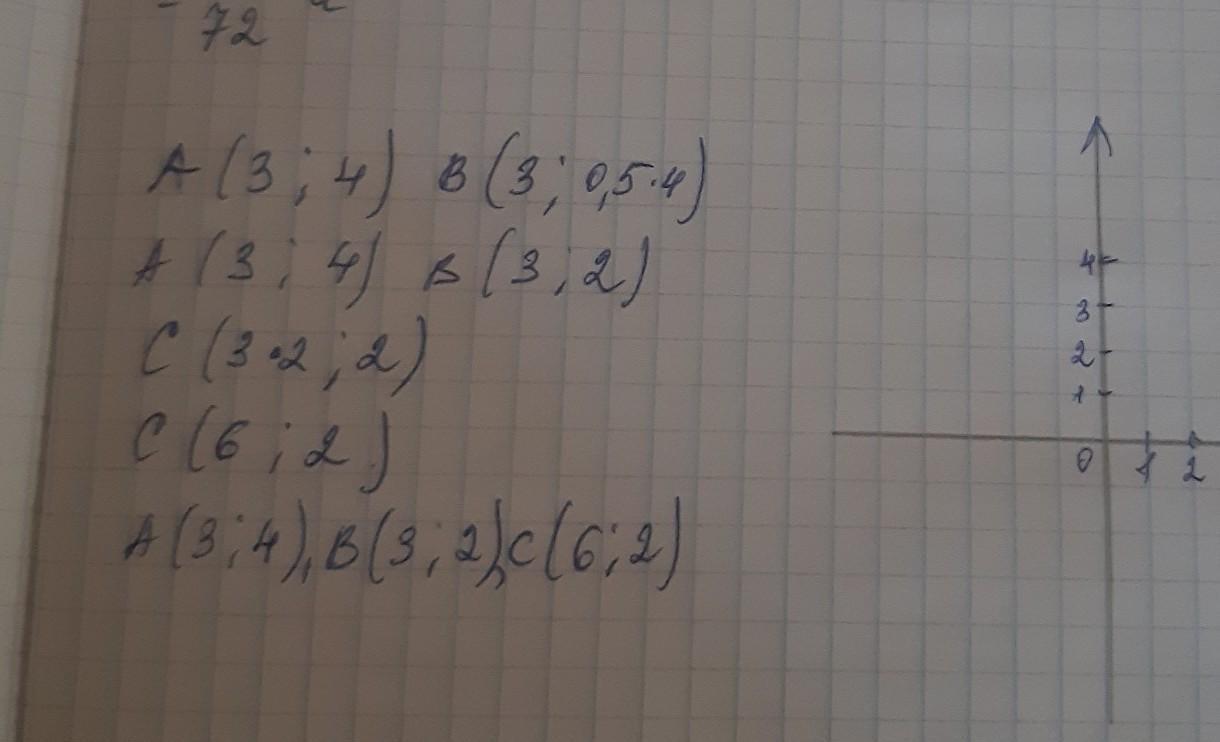 72
A (3 ; 4) B (3 ; 0,5·4)
A (3 ; 4) B (3 ; 2)
C (3·2 ; 2)
C (6 ; 2)
A (3 ; 4), B (3 ; 2), C (6 ; 2)
4
3
2
1
0 1 2